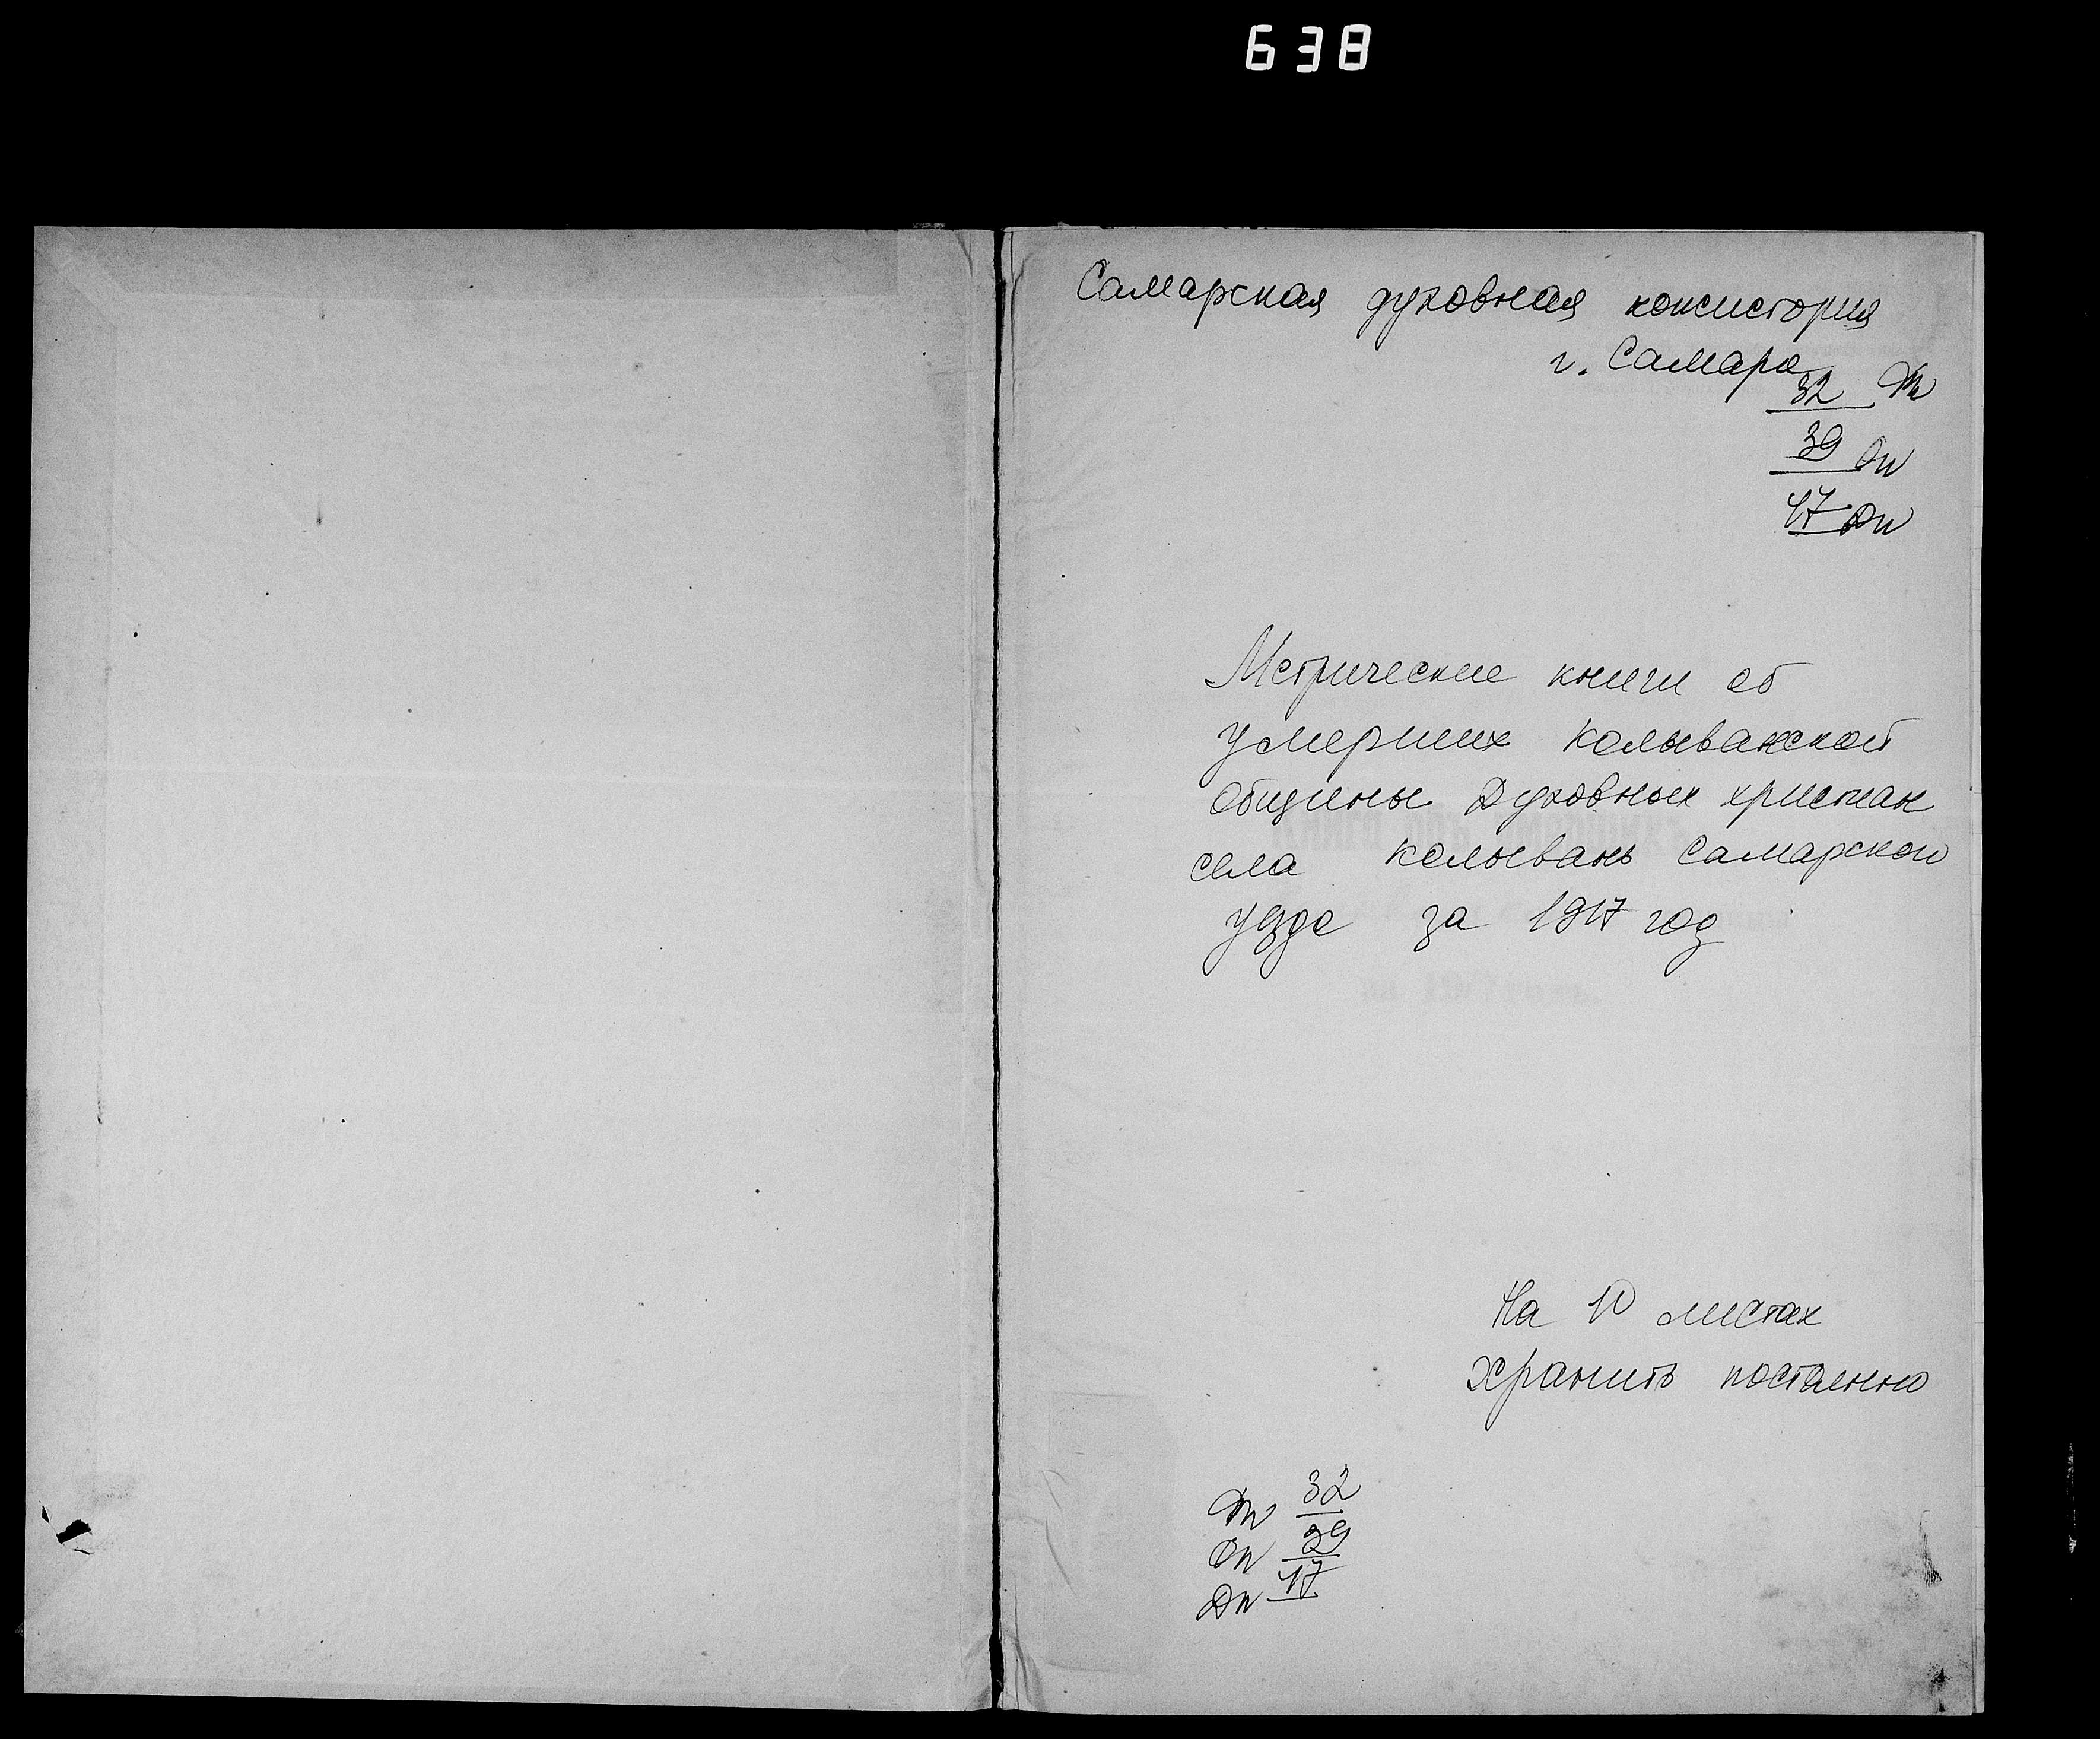 638
Самарская духовная консистория
г. Самара
32 Ф
39 Оп
17 Дп
Метрические книги об
умерших Колыванской
Общины Духовных христиан
села Колывань Самарской
уезде за 1917 год
На 10 листах
Хранить постоянно
Ф 32
Оп 39
Дп 17